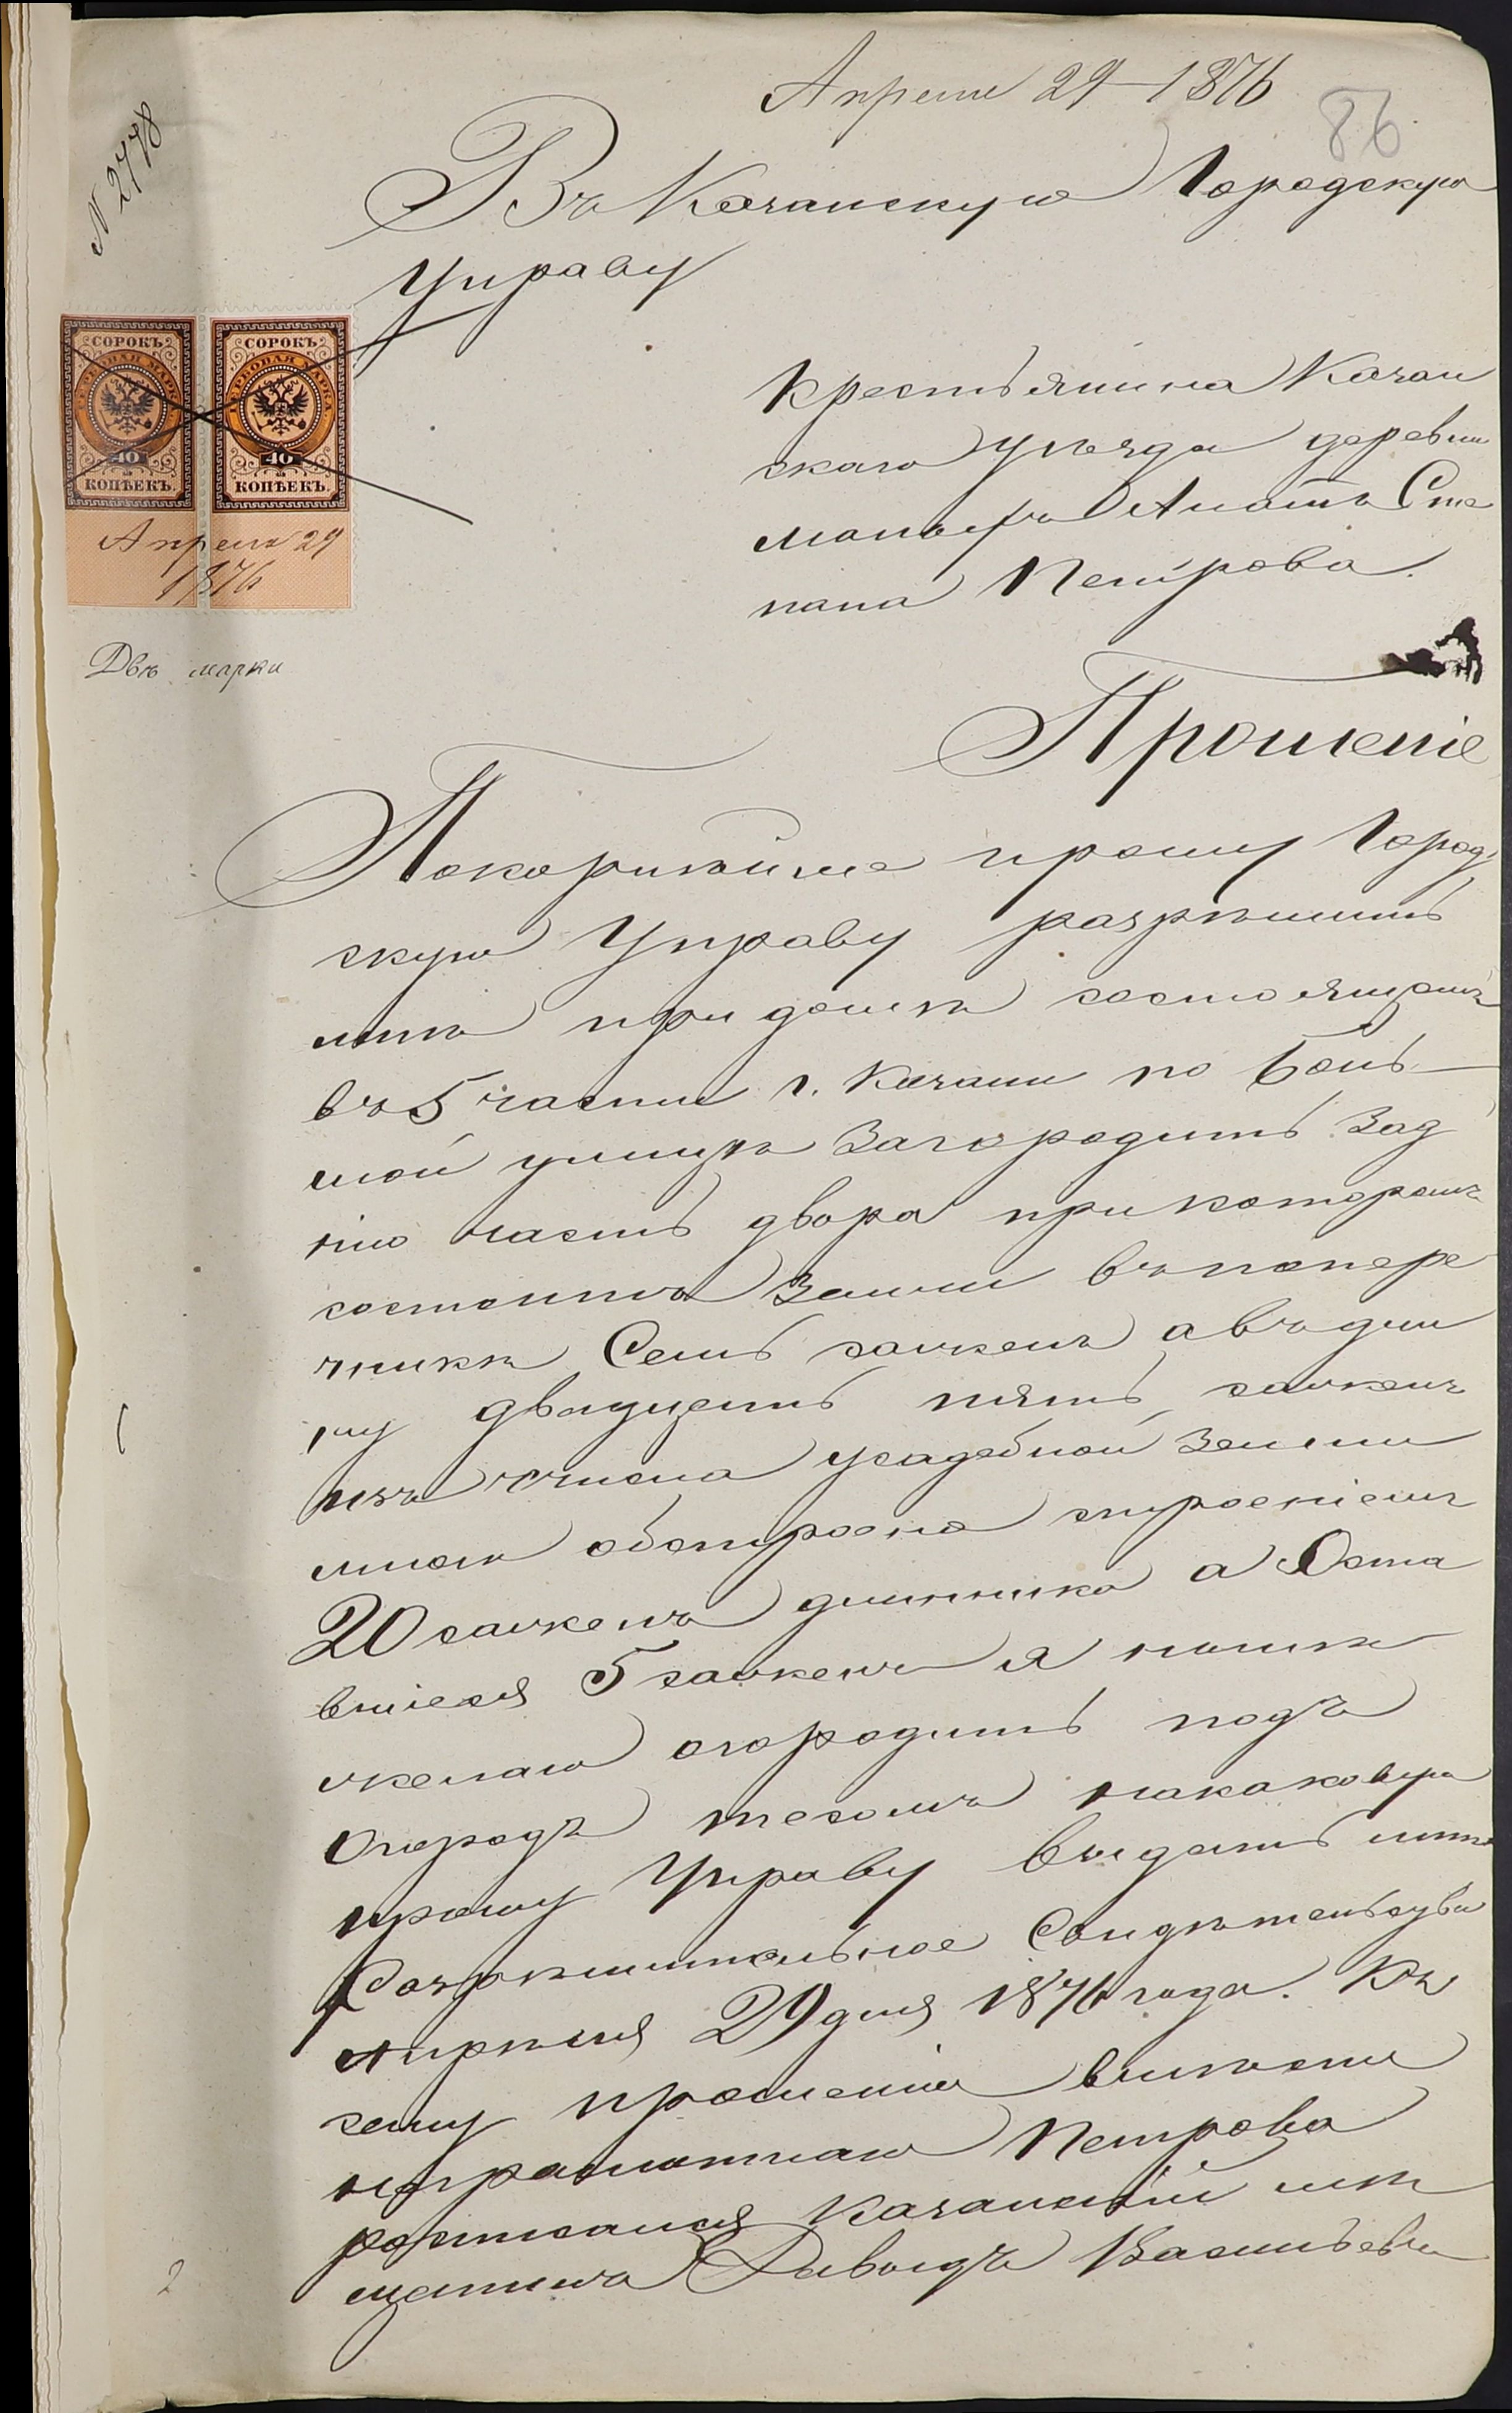 Апреля 29 1876
86
N 2778
Въ Казанскую Городскую
Управу
СОРОКЪ СОРОКЪ
ГЕРБОВАЯ МАРКА ГЕРБОВАЯ МАРКА
40 40
КОПѢЕКЪ. КОПѢЕКЪ.
Апреля 29
1876
Двѣ марки
Крестьянина Казан
скаго Уѣзда деревни
Сте
пана Петрова.
Прошеніе
Покорнѣйше прошу Город
скую Управу разрѣшить
мнѣ при домѣ состоящемъ
въ 5 части г. Казани по Боль
шой улицѣ Загородить Зад
нію часть двора при которомъ
состоитъ Земли въ попере
чникѣ Семь сажень а въ дли
ну двадцеть пять сажень
изъ числа усадебной Земли
мною обстроено строеніемъ
20 сажень длиннико а Оста
вшіеся 5 сажень я нынѣ
желаю огородить подъ
Огородъ тесомъ накаковую
прошу Управу выдать мнѣ
Разрѣшительное Свидѣтельство
Апрѣля 29 дня 1876 года. Къ
сему прошенію вмѣсто
неграмотнаго Петрова
росписался Казанскій мѣ
щанинъ Давыдъ Васильевъ
2